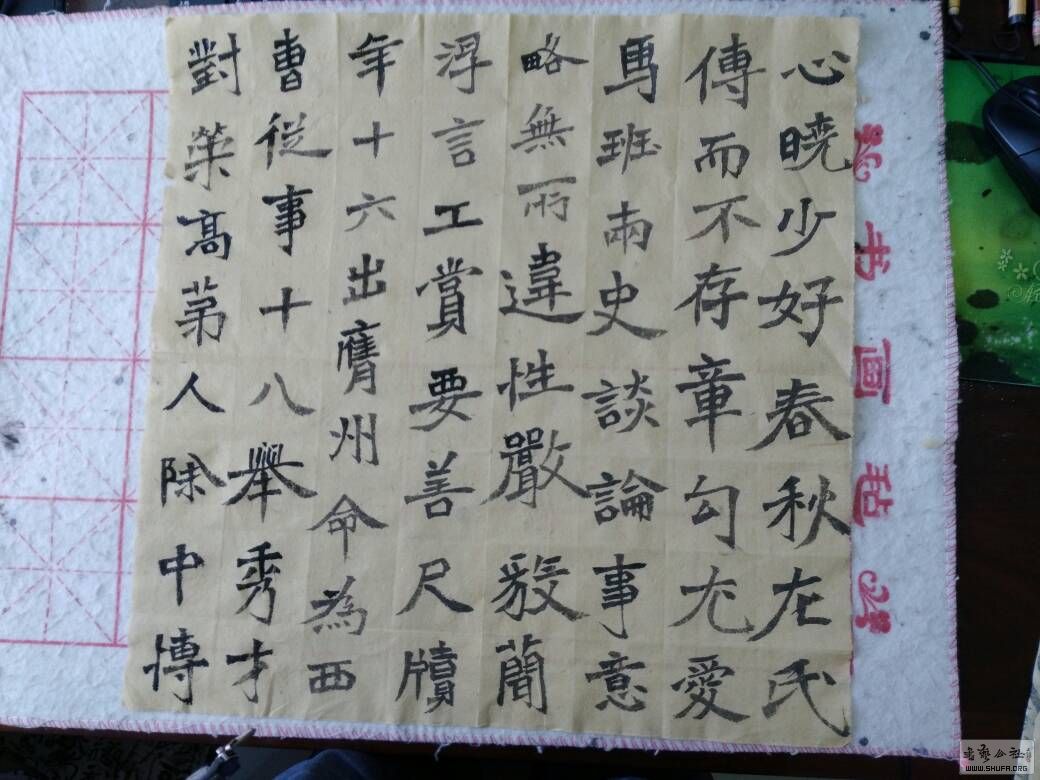 心曉少好春秋左氏
傳而不存章勾尤愛
馬班兩史談論事意
略無所違性嚴毅簡
浮言工賞要善尺牘
年十六出膺州命為西
曹從事十八舉秀才
對策高第人除中博
书画毡
書藝公社
WWW.SHUFA.ORG